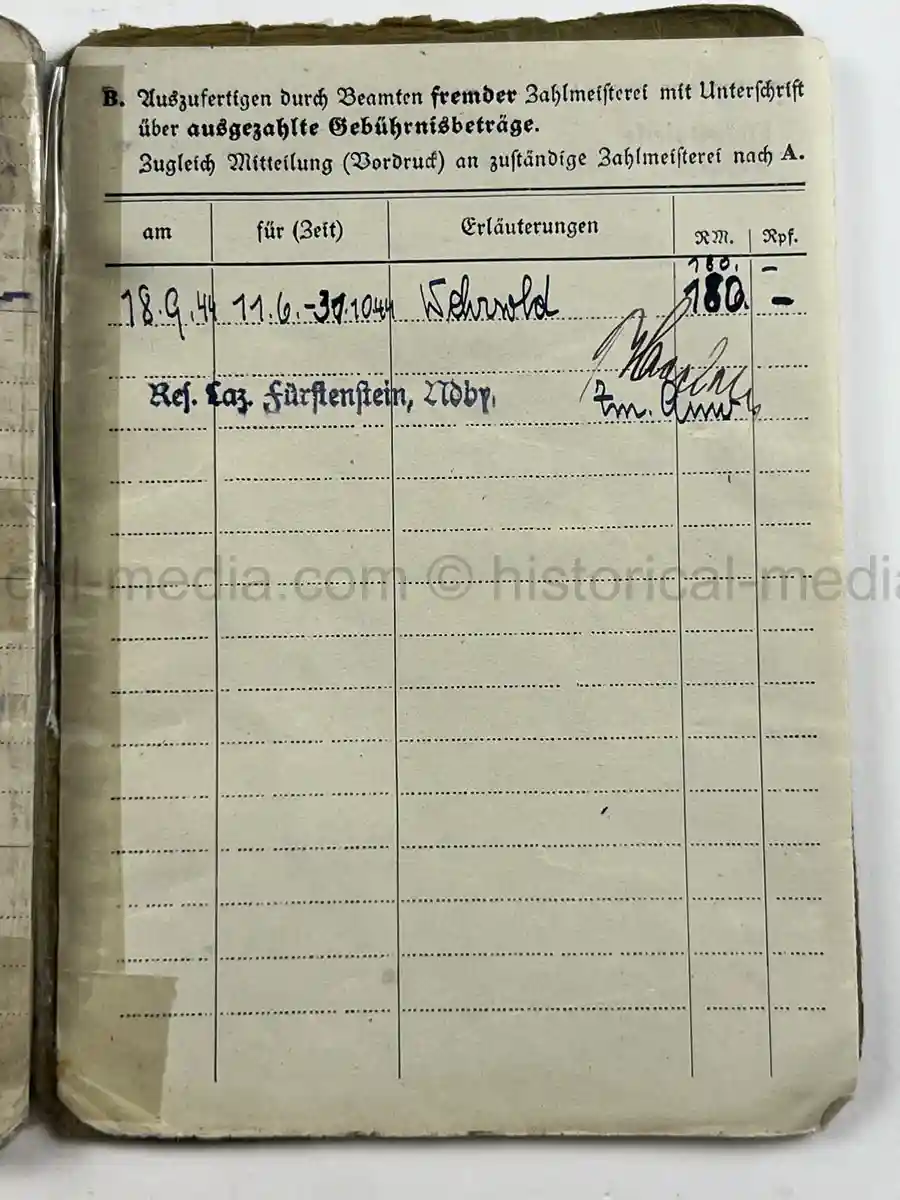 B. Auszufertigen durch Beamten fremder Zahlmeisterei mit Unterschrift
über ausgezahlte Gebührnisbeträge.
Zugleich Mitteilung (Vordruck) an zuständige Zahlmeisterei nach A.
am für (Zeit) Erläuterungen RM. Rpf.
180. –
18.9.44 11.6.–31.10.44 Wehrsold 180. –
Res. Laz. Fürstenstein, Ndby.
Zm.
al-media.com © historical-media